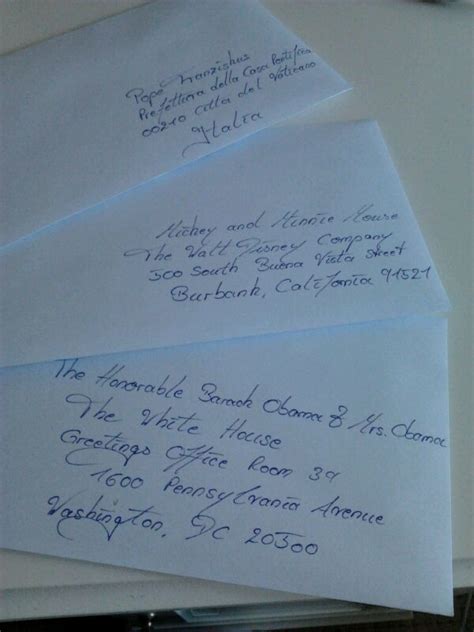 Pope Franziskus
Prefettura della Casa Pontificia
00210 Citta del Vaticano
Italia
Mickey and Minnie Mouse
The Walt Disney Company
500 South Buena Vista Street
Burbank, California 91521
The Honorable Barack Obama & Mrs. Obama
The White House
Greetings Office Room 39
1600 Pennsylvania Avenue
Washington, DC 20500